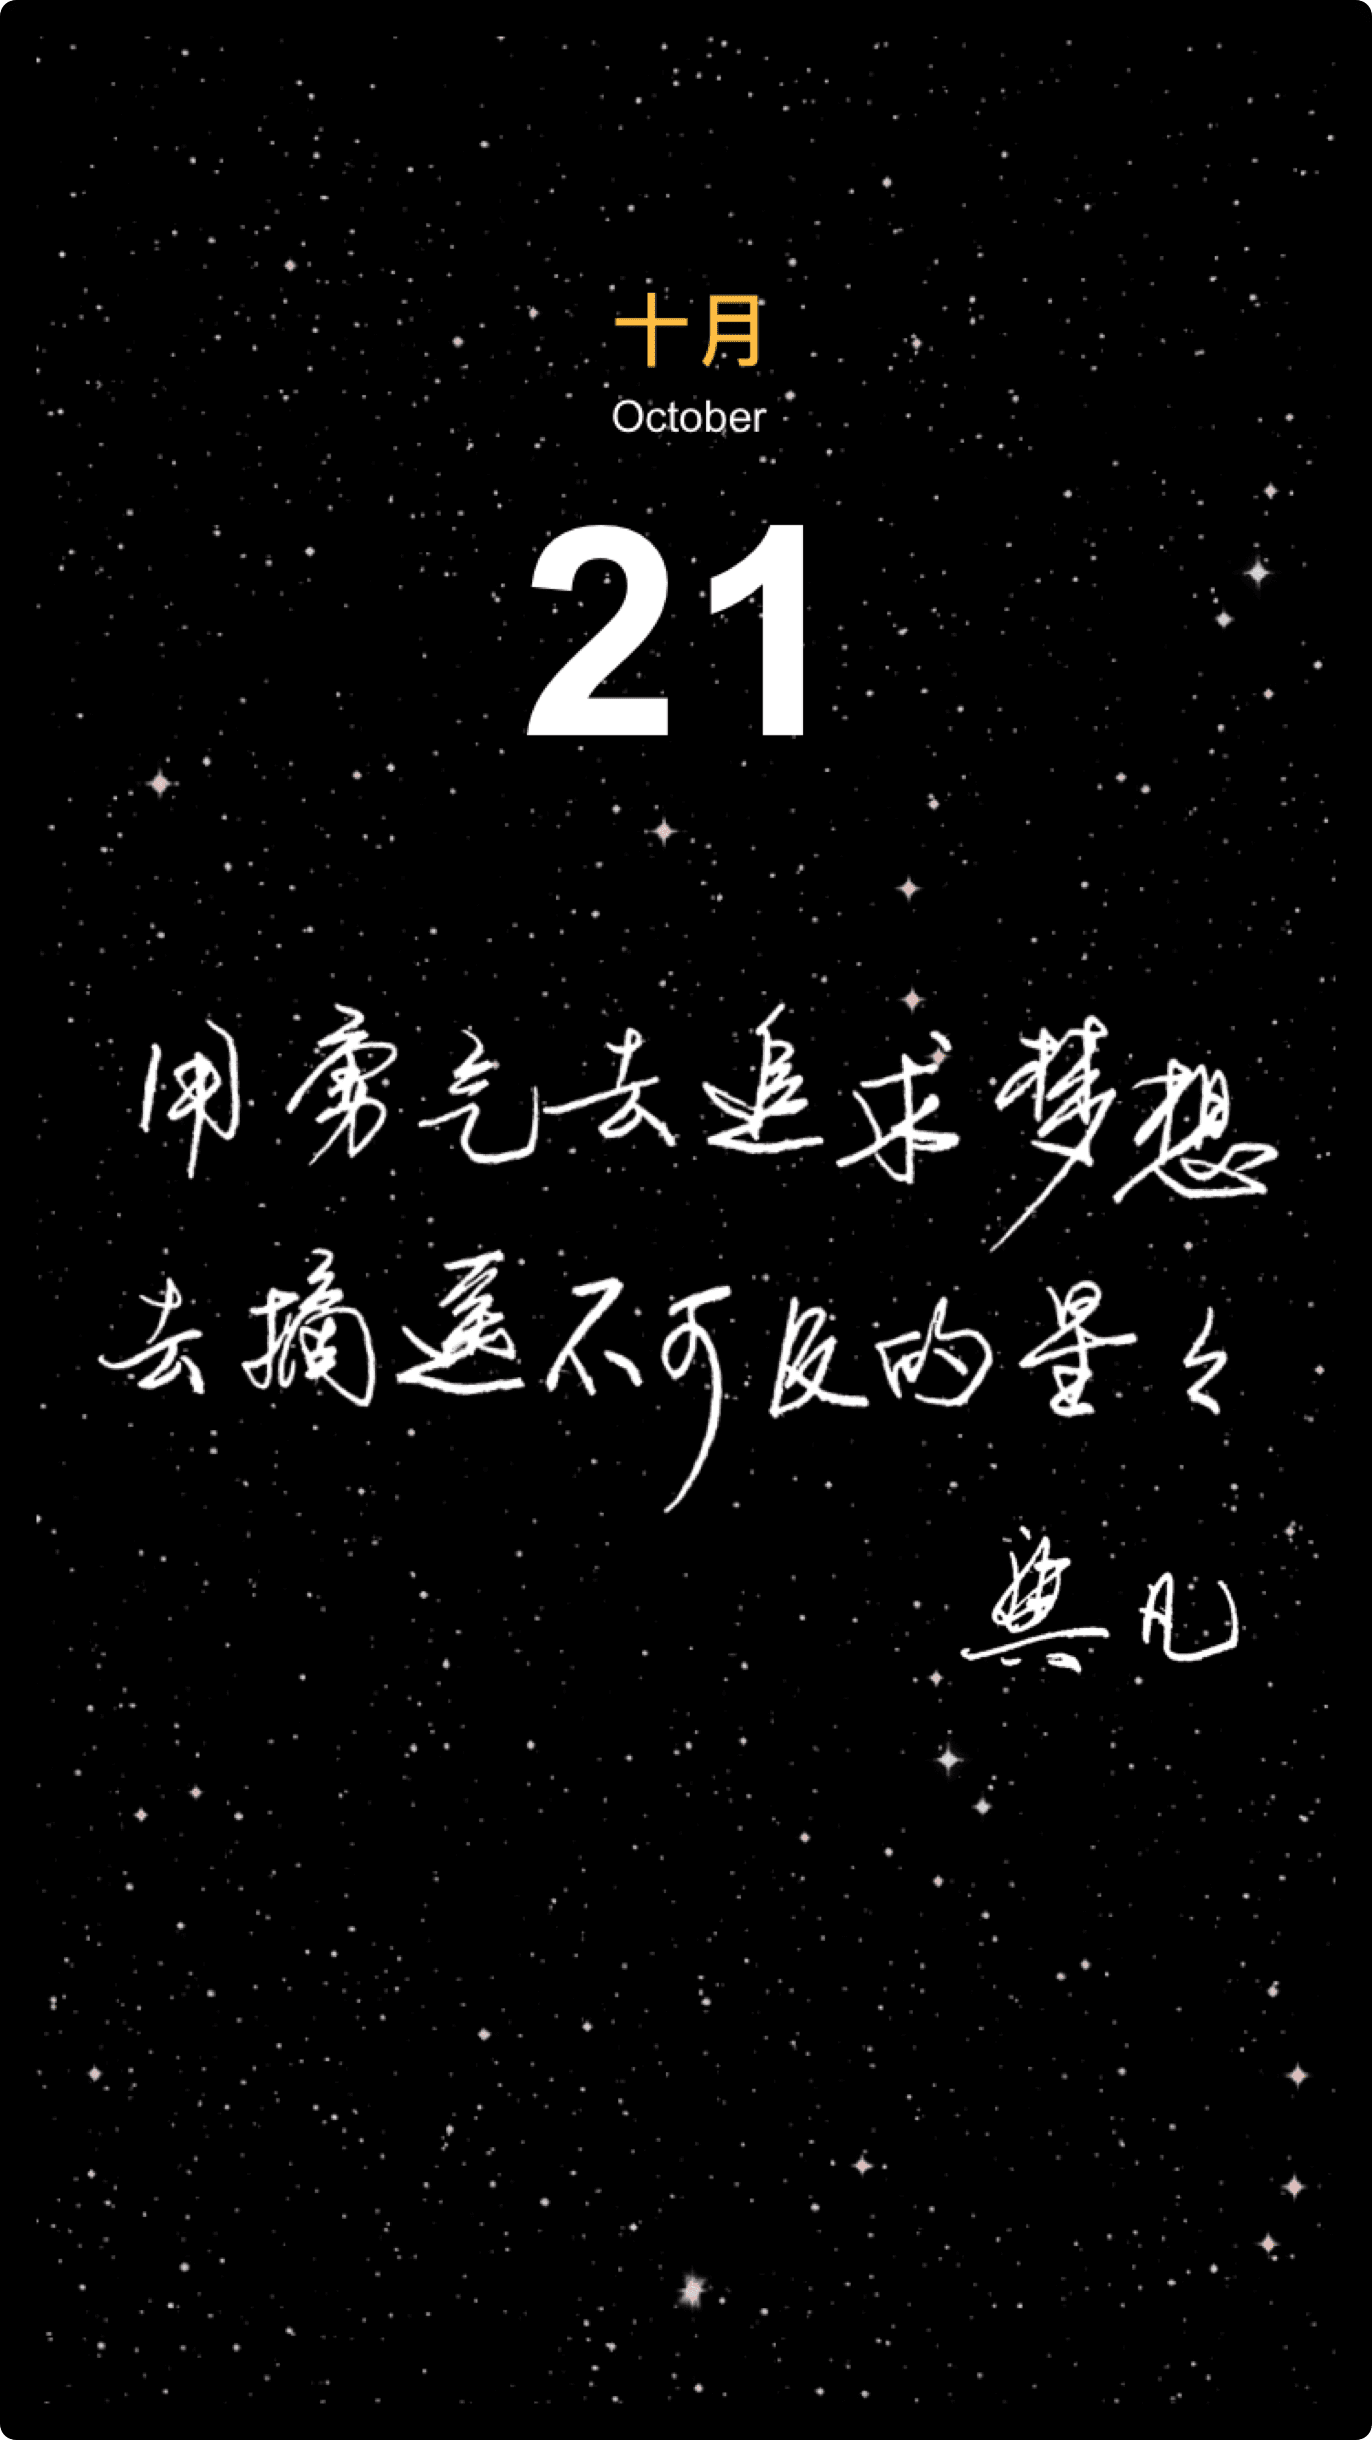 十月
October
21
用勇气去追求梦想
去摘遥不可及的星々
典凡